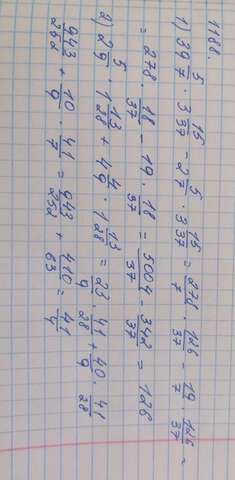 1188.
1) 39 5/7 · 3 15/37 - 2 5/7 · 3 15/37 = 278/7 · 126/37 - 19/7 · 126/37 =
= 278 · 18/37 - 19 · 18/37 = 5004/37 - 342/37 = 126
2) 2 5/9 · 1 13/28 + 4 4/9 · 1 13/28 = 23/9 · 41/28 + 40/9 · 41/28
943/252 + 10/9 · 41/7 = 943/252 + 410/63 = 41/4